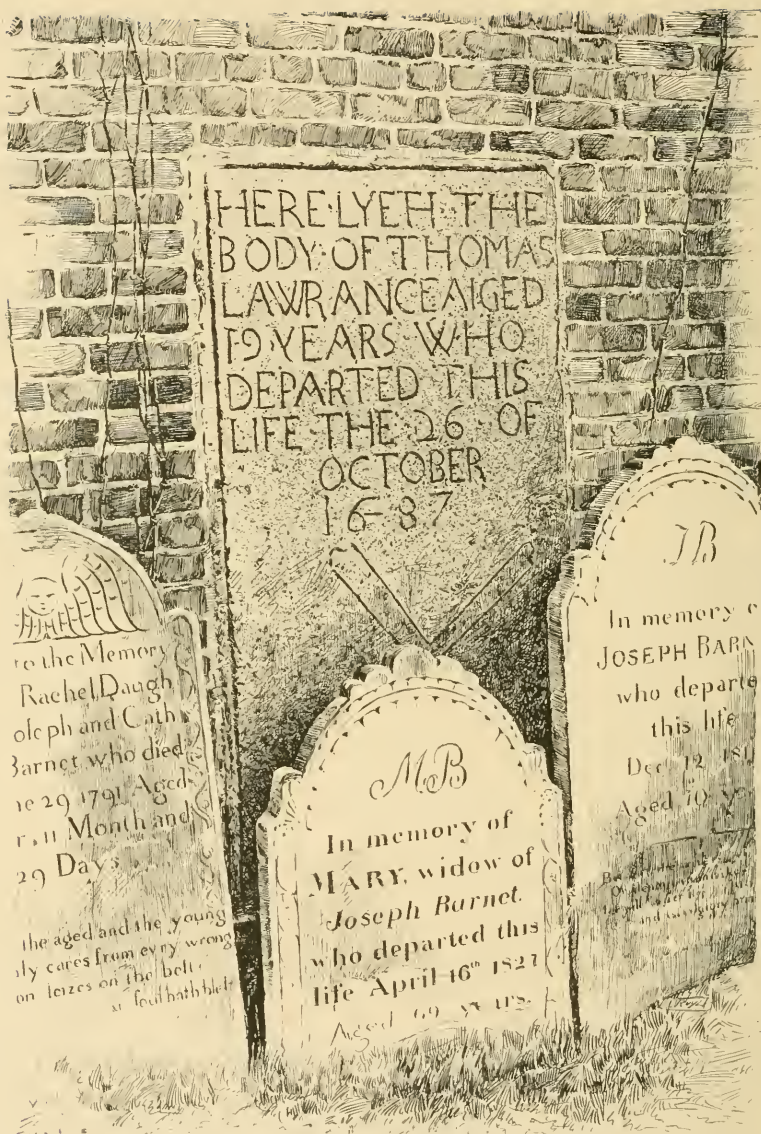 HERE·LYEH·THE
BODY·OF THOMAS
LAWRANCE AIGED
19·YEARS WHO
DEPARTED THIS
LIFE·THE·26 OF
OCTOBER
1687
to the Memory
Rachel Daugh
oſeph and Cath
Barnet who died
29 1791 Aged
11 Month and
29 Days
the aged and the young
cares from evry wrong
on ſeizes on the
hath
MB
In memory of
MARY, widow of
Joseph Barnet.
who departed this
life April 16th 1827
Aged 69 years.
JB
In memory o
JOSEPH BARN
who departe
this life
Dec 12 181
Aged 70 Y